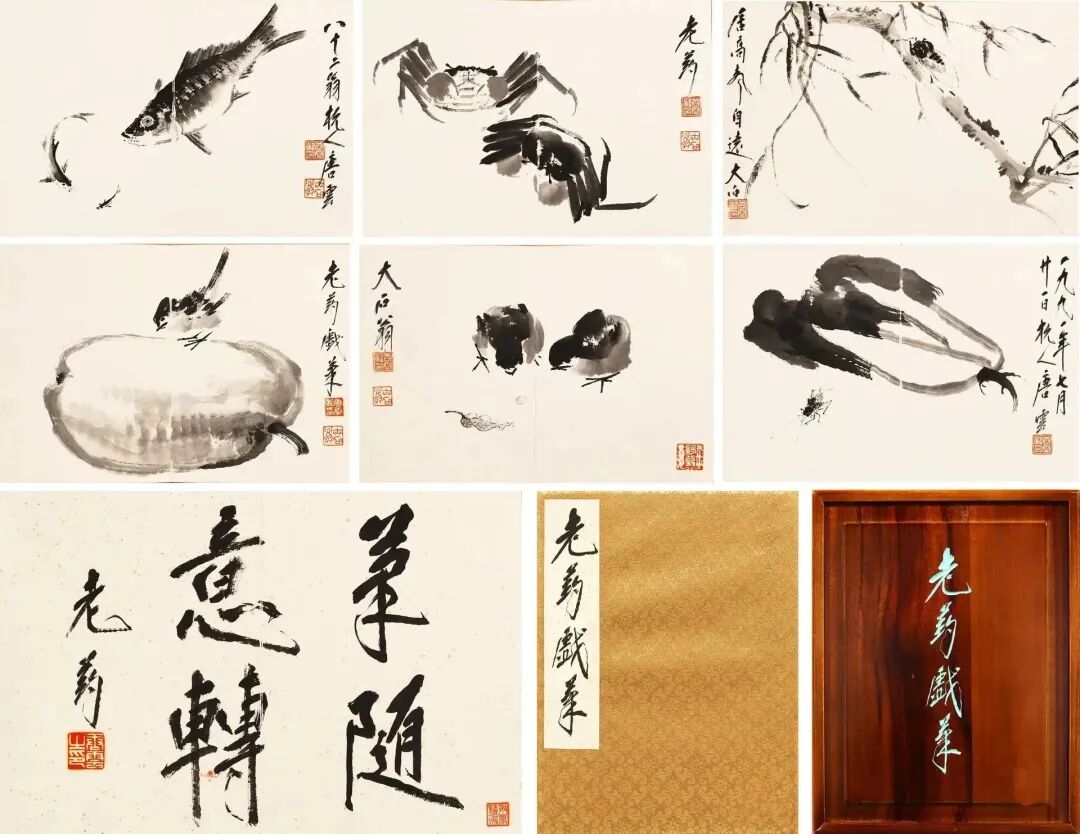 八十二翁杭人唐雲
老葯
居高声自遠 大石
老葯戲筆
大石翁
一九九一年七月
廿一日杭人唐雲
筆随
意轉
老葯
老葯戲筆
老葯戲筆